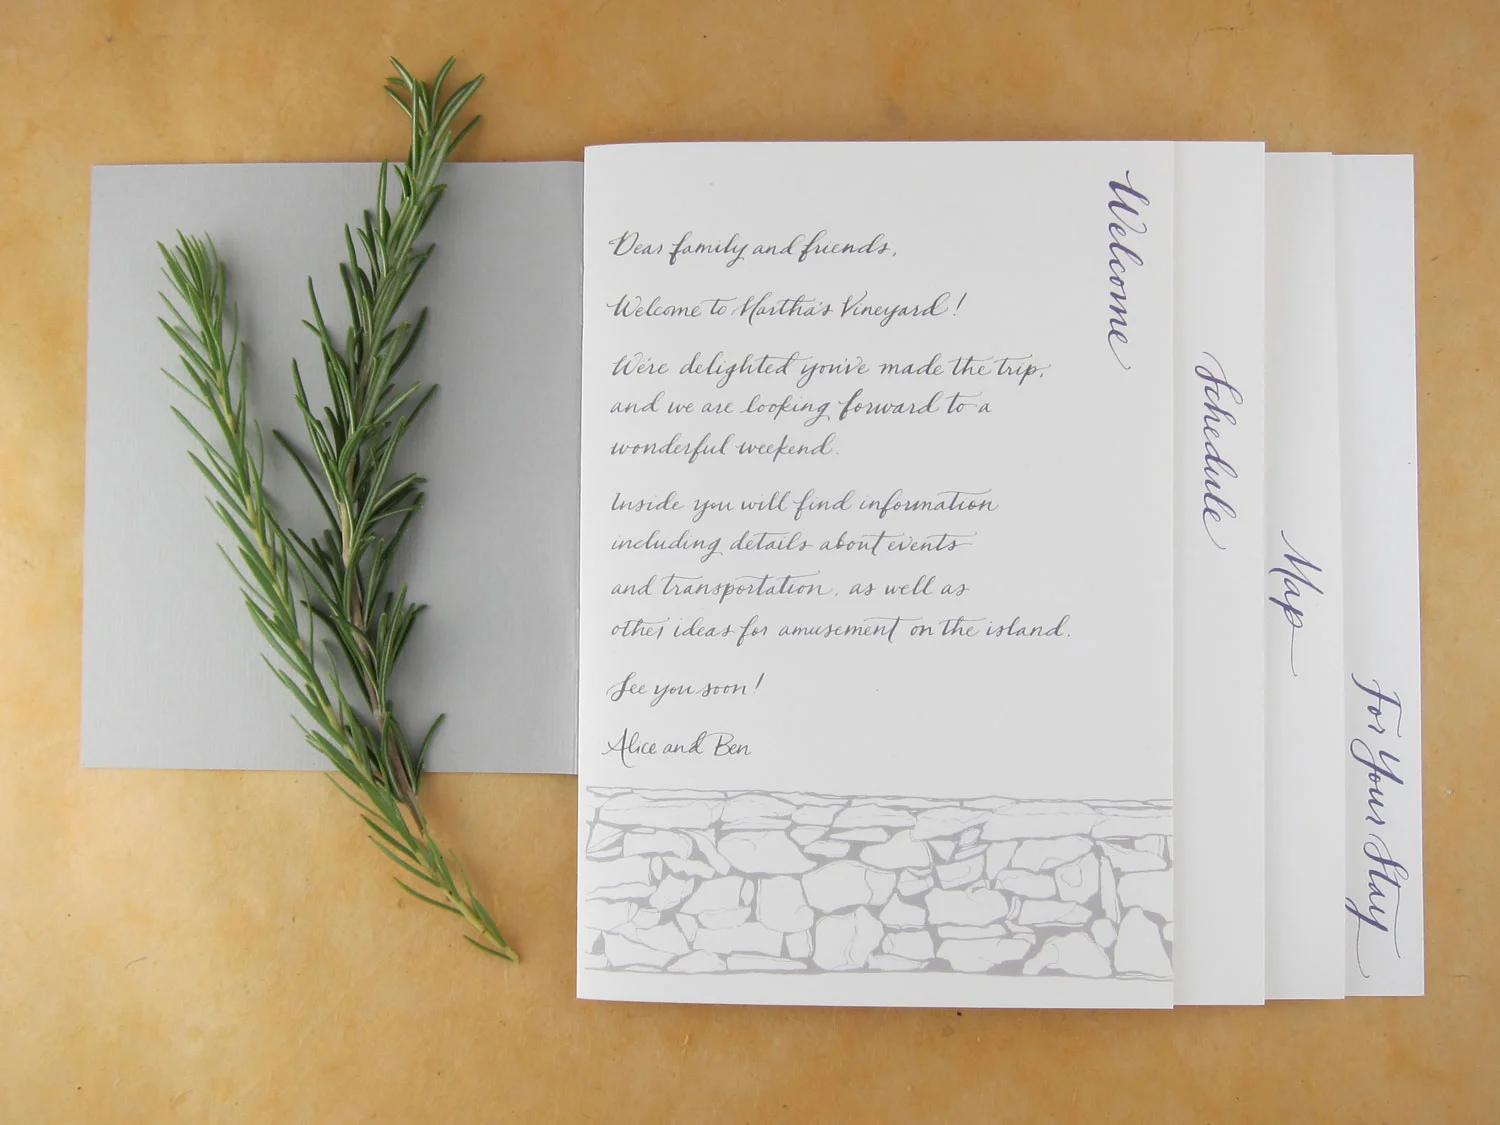 Dear family and friends,
Welcome to Martha's Vineyard!
We're delighted you've made the trip,
and we are looking forward to a
wonderful weekend.
Inside you will find information
including details about events
and transportation, as well as
other ideas for amusement on the island.
See you soon!
Alice and Ben
Welcome
Schedule
Map
For Your Stay